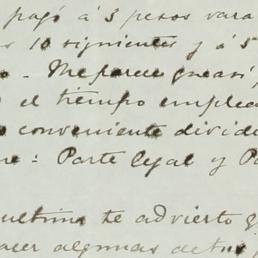 pagó á 3 pesos vara
s 10 siguientes y á 5
o - Me parece que así,
el tiempo emplea
o conveniente divide
re: Parte legal y Pa
ultima te advierto q
acer algunas de tus